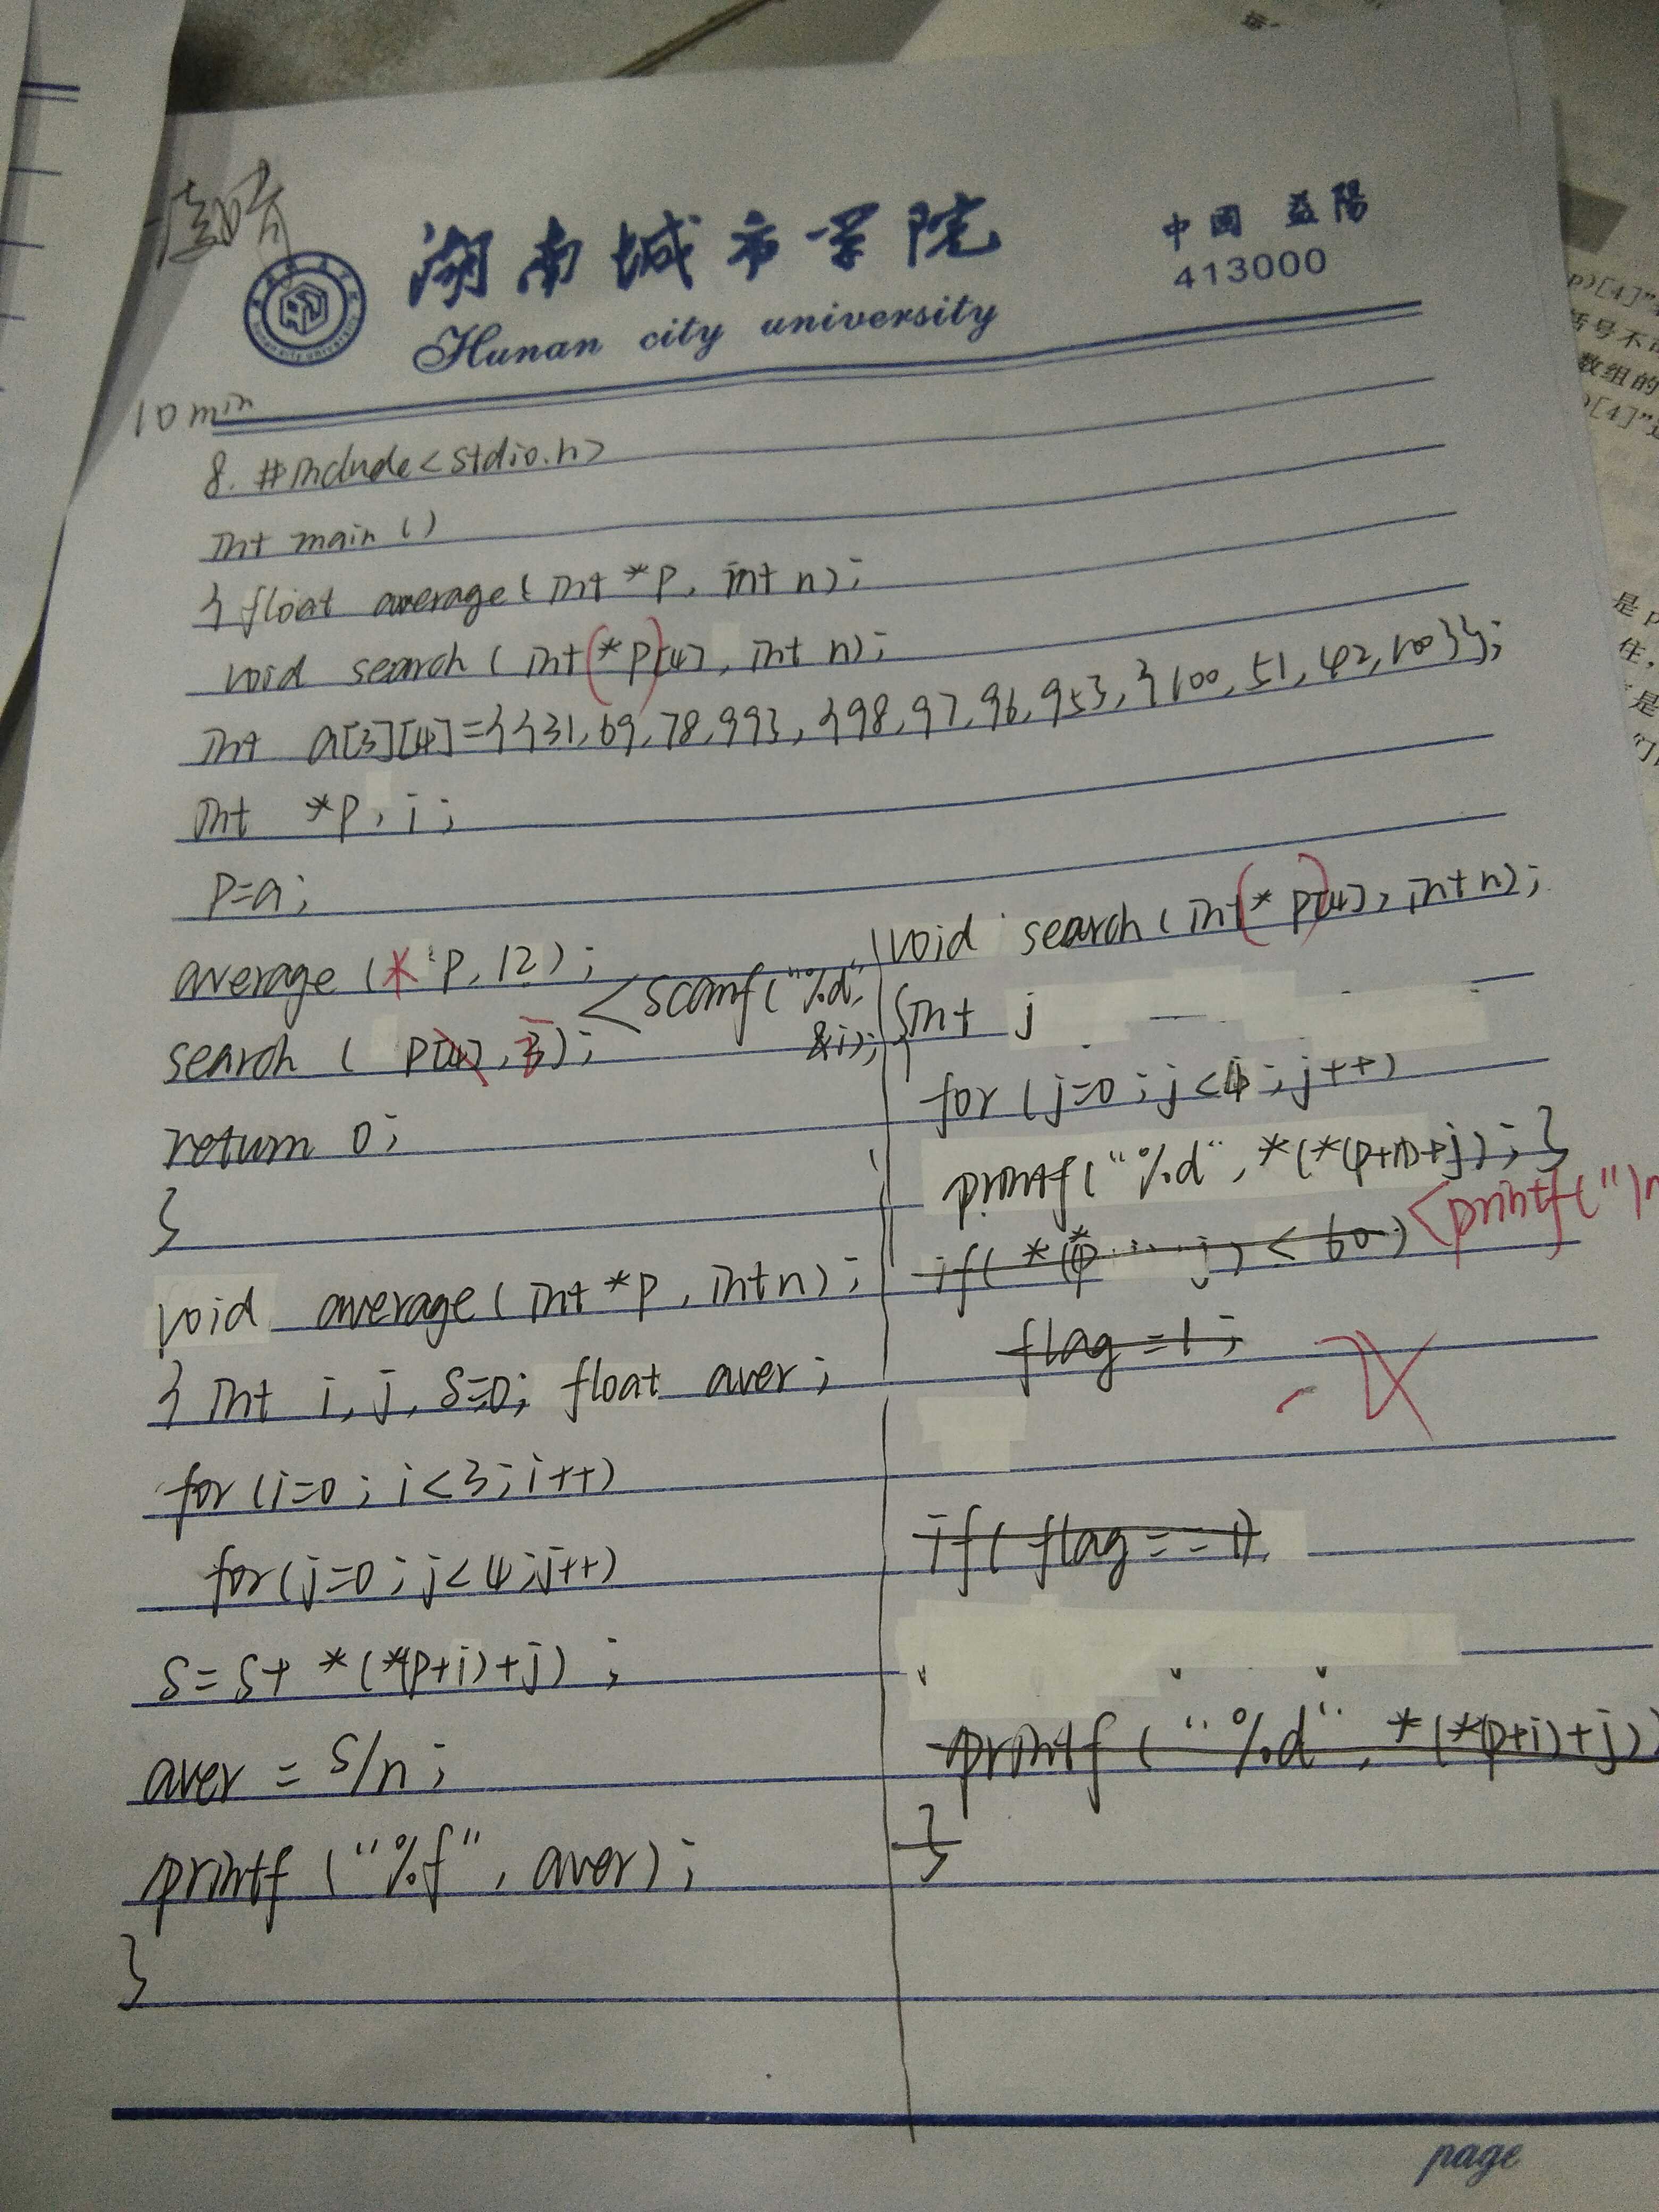 湖南城市学院
Hunan city university
中国 益陽
413000
10 min
8. #include<stdio.h>
int main()
{ float average(int *p, int n);
void search(int(*p)[4], int n);
int a[3][4]={{31,69,78,99},{98,97,96,95},{100,51,42,100}};
int *p, i;
p=a;
average(* p, 12);
<scanf("%d", &i);
search( p[4], 3);
return 0;
}
void average(int *p, int n);
{ int i, j, s=0; float aver;
for(i=0; i<3; i++)
for(j=0; j<4; j++)
s=s+ *(*(p+i)+j);
aver = s/n;
printf("%f", aver);
}
void search(int(*p)[4], int n);
{int j
for(j=0; j<4; j++)
printf("%d", *(*(p+n)+j); }
<printf("\n
if( *(*p j) < 60)
flag=1;
if(flag==1)
printf("%d", *(*(p+i)+j))
}
page
p)[4]"
括号不
数组的
)[4]"
是p
住,
是